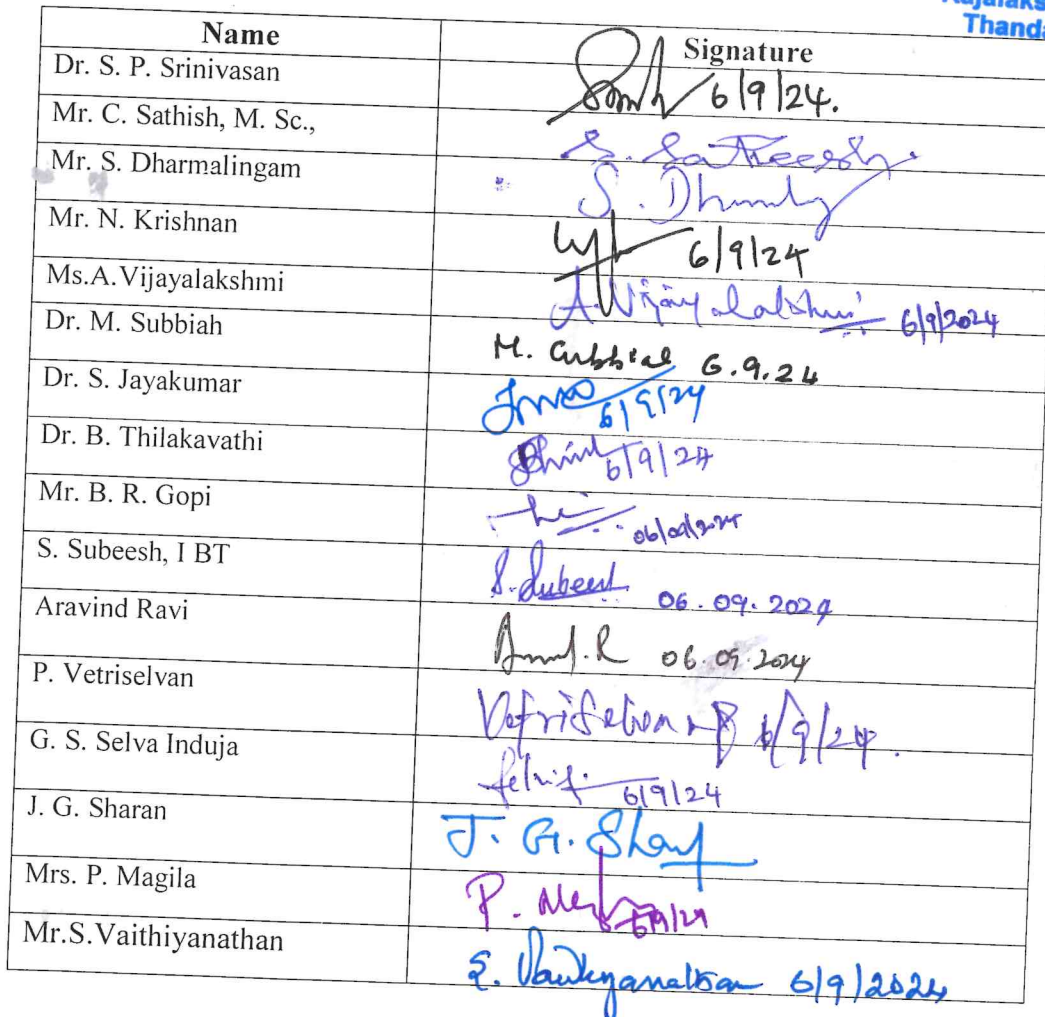 Thanda
Name Signature
Dr. S. P. Srinivasan 6/9/24.
Mr. C. Sathish, M. Sc., S. Satheesh.
Mr. S. Dharmalingam S.
Mr. N. Krishnan 6/9/24
Ms.A.Vijayalakshmi A. Vijayalakshmi 6/9/2024
Dr. M. Subbiah M. Subbiah 6.9.24
Dr. S. Jayakumar 6/9/24
Dr. B. Thilakavathi 6/9/24
Mr. B. R. Gopi 06/09/2024
S. Subeesh, I BT S. Subeesh 06.09.2024
Aravind Ravi 06.09.2024
P. Vetriselvan Vetriselvan P 6/9/24.
G. S. Selva Induja 6/9/24
J. G. Sharan J. G. Sharan
Mrs. P. Magila P. 6/9/24
Mr.S.Vaithiyanathan S. Vaithyanathan 6/9/2024